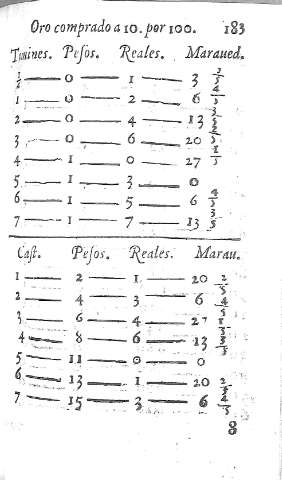 Oro comprado a 10. por 100. 183
Tomines. Pesos. Reales. Maraued.
1/2 — 0 — 1 — 3 2/5
1 — 0 — 2 — 6 4/5
2 — 0 — 4 — 13 3/5
3 — 0 — 6 — 20 2/5
4 — 1 — 0 — 27 1/5
5 — 1 — 3 — 0
6 — 1 — 5 — 6 4/5
7 — 1 — 7 — 13 3/5
Cast. Pesos. Reales. Marau.
1 — 2 — 1 — 20 2/5
2 — 4 — 3 — 6 4/5
3 — 6 — 4 — 27 1/5
4 — 8 — 6 — 13 3/5
5 — 11 — 0 — 0
6 — 13 — 1 — 20 2/5
7 — 15 — 3 — 6 4/5
8